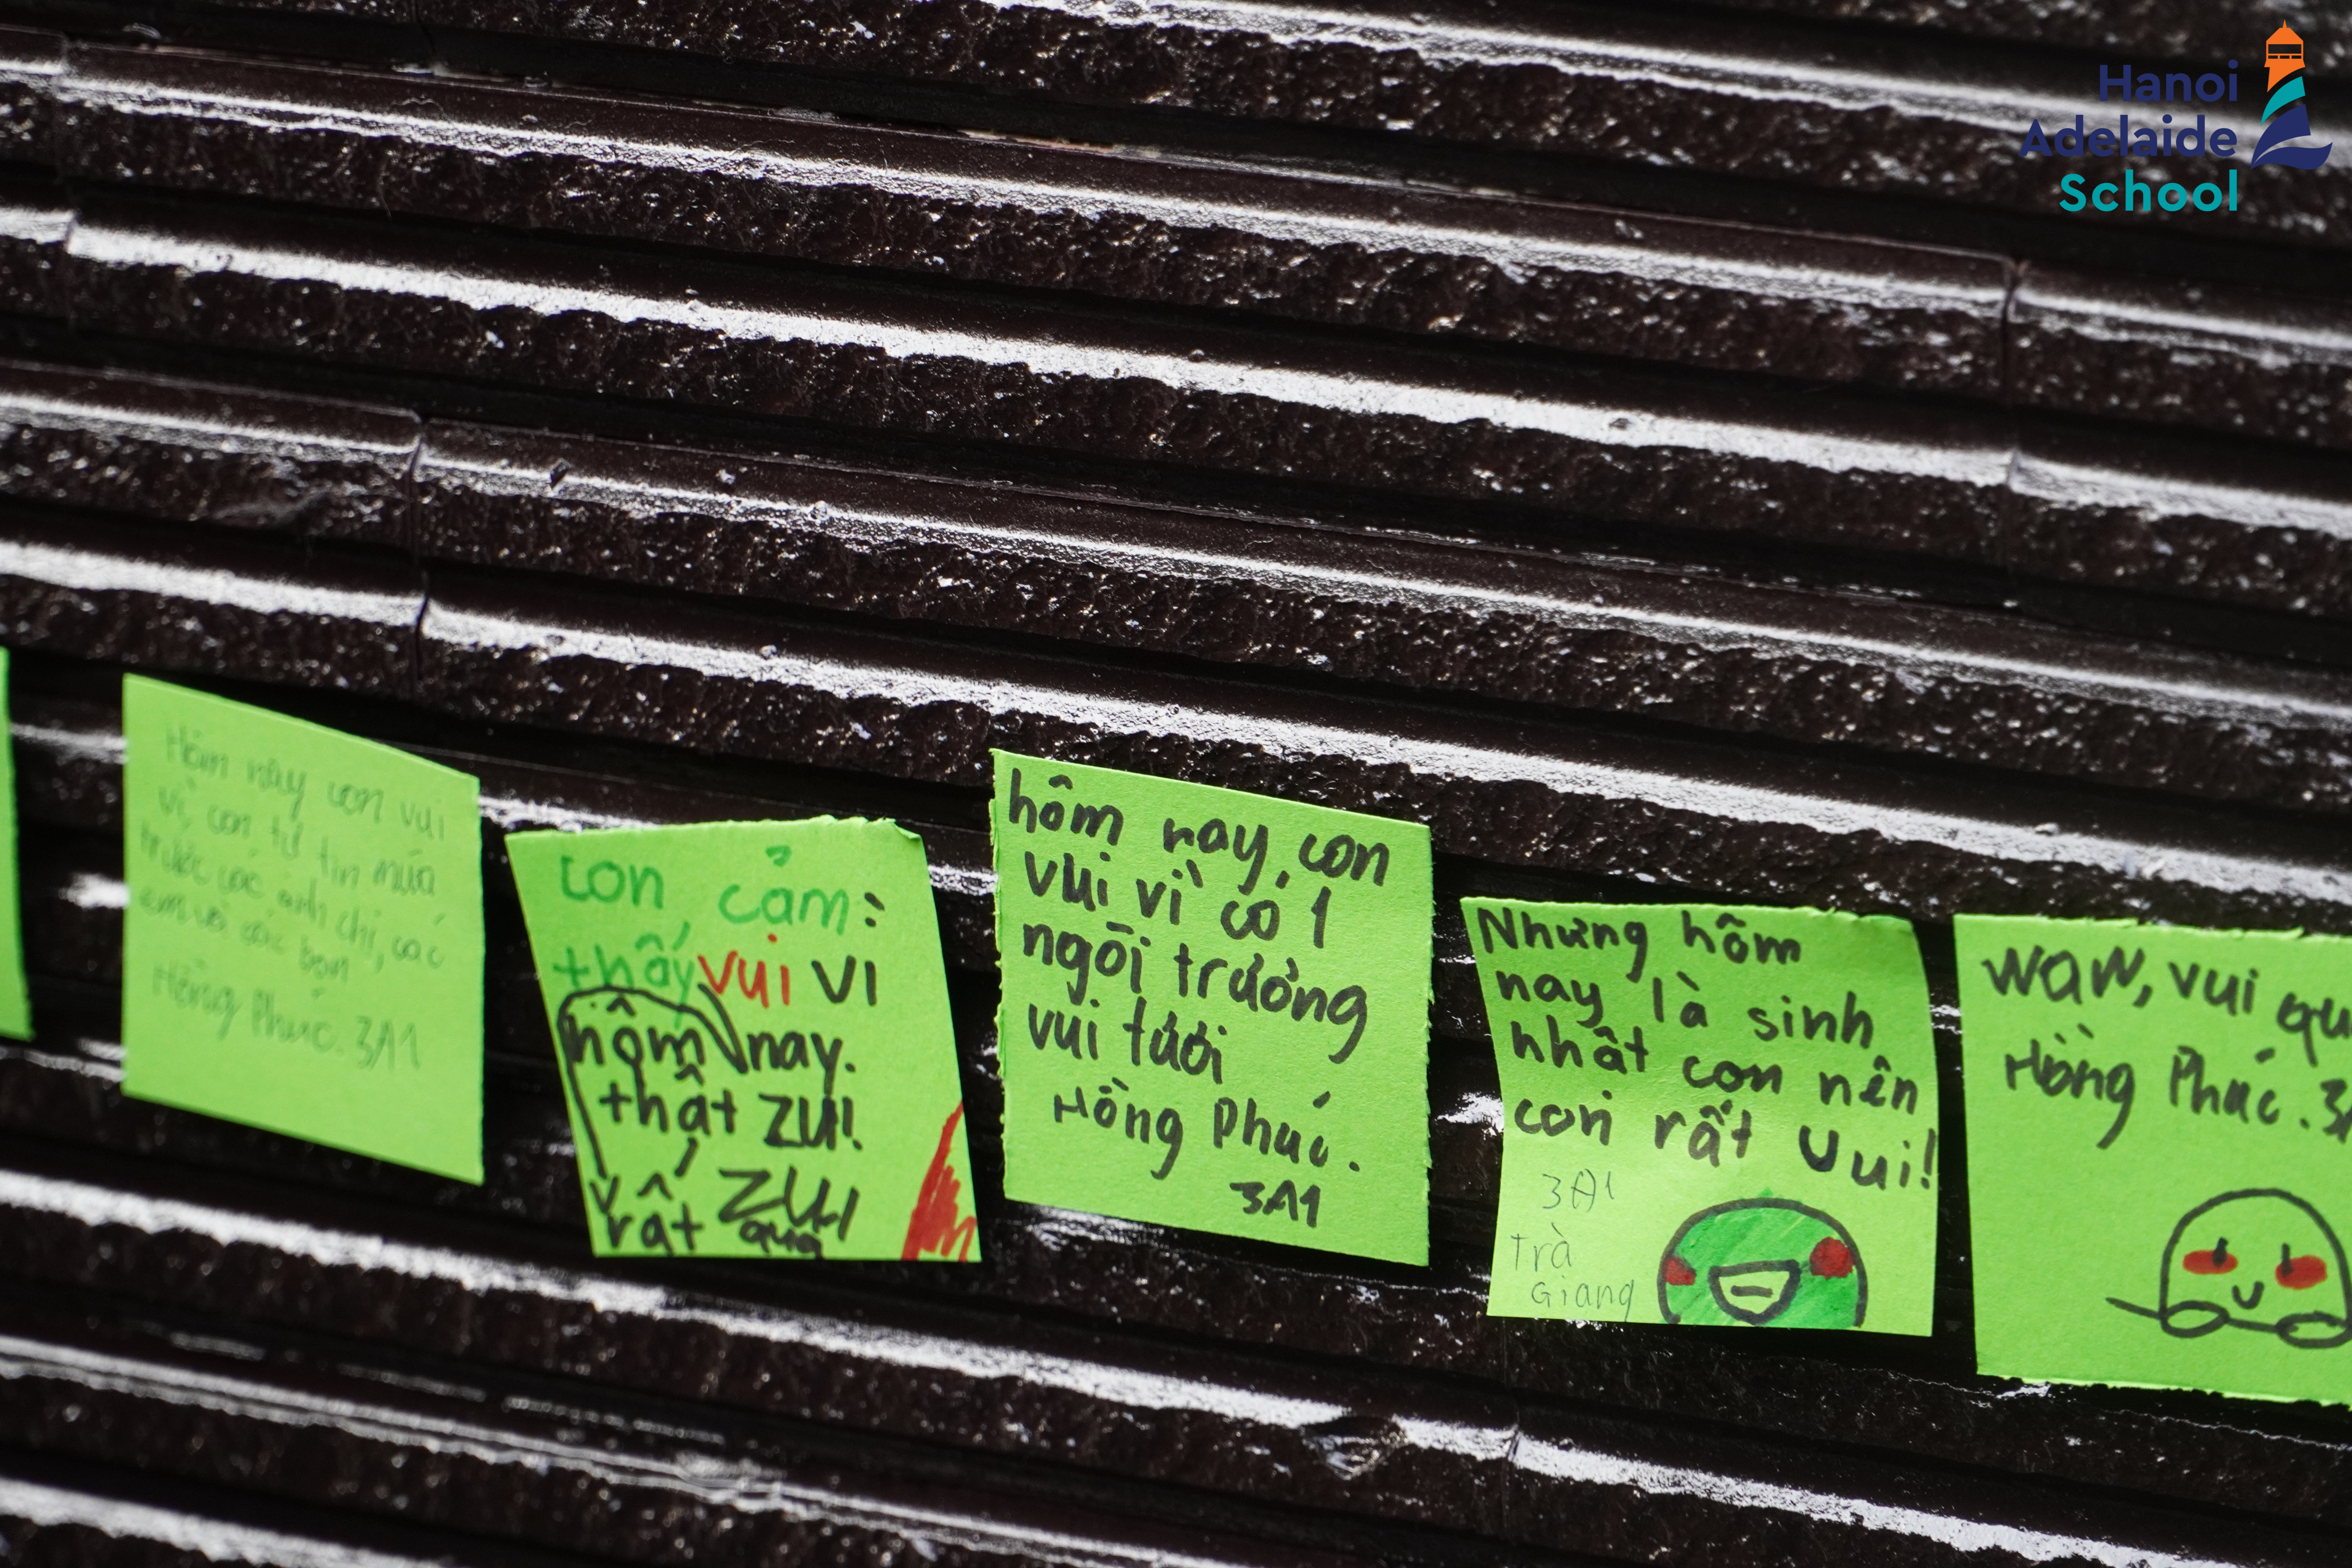 Hanoi
Adelaide
School
Hôm nay con vui
vì con tự tin múa
trước các anh chị, các
em và các bạn
Hồng Phúc. 3A1
con cảm
thấy vui vì
hôm nay.
thật zui!
rất zui
quá
hôm nay, con
vui vì có 1
ngôi trường
vui tươi
Hồng Phúc.
3A1
Nhưng hôm
nay là sinh
nhât con nên
con rất vui!
3A1
Trà
Giang
waw, vui qu
Hồng Phúc. 3